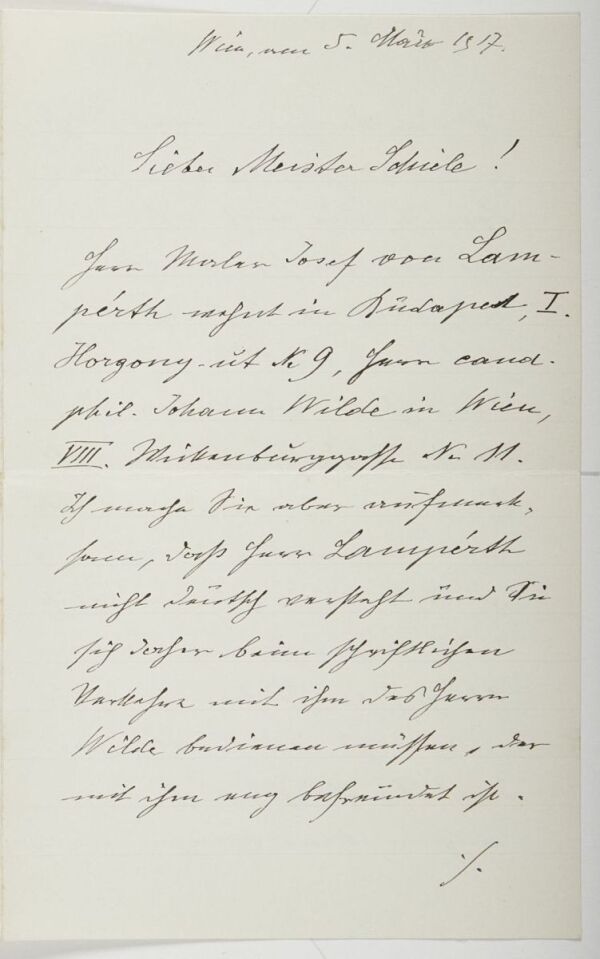 Wien, am 5. März 1917.
Lieber Meister Schiele!
Herr Maler Josef von Lam-
pérth wohnt in Budapest, I.
Horgony-út № 9, Herr cand.
phil. Johann Wilde in Wien,
VIII. Wickenburggasse № 11.
Ich mache Sie aber aufmerk-
sam, daß Herr Lampérth
nicht deutsch versteht und Sie
sich daher beim schriftlichen
Verkehre mit ihm des Herrn
Wilde bedienen müssen, der
mit ihm eng befreundet ist.
./.